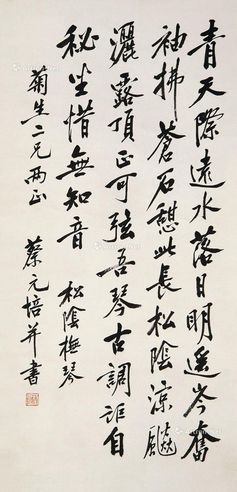 青天際遠水落日明遙岑奮
袖拂蒼石憩此長松陰涼飈
灑露頂正可弦吾琴古調詎自
秘坐惜無知音 松陰撫琴
菊生二兄兩正 蔡元培并書